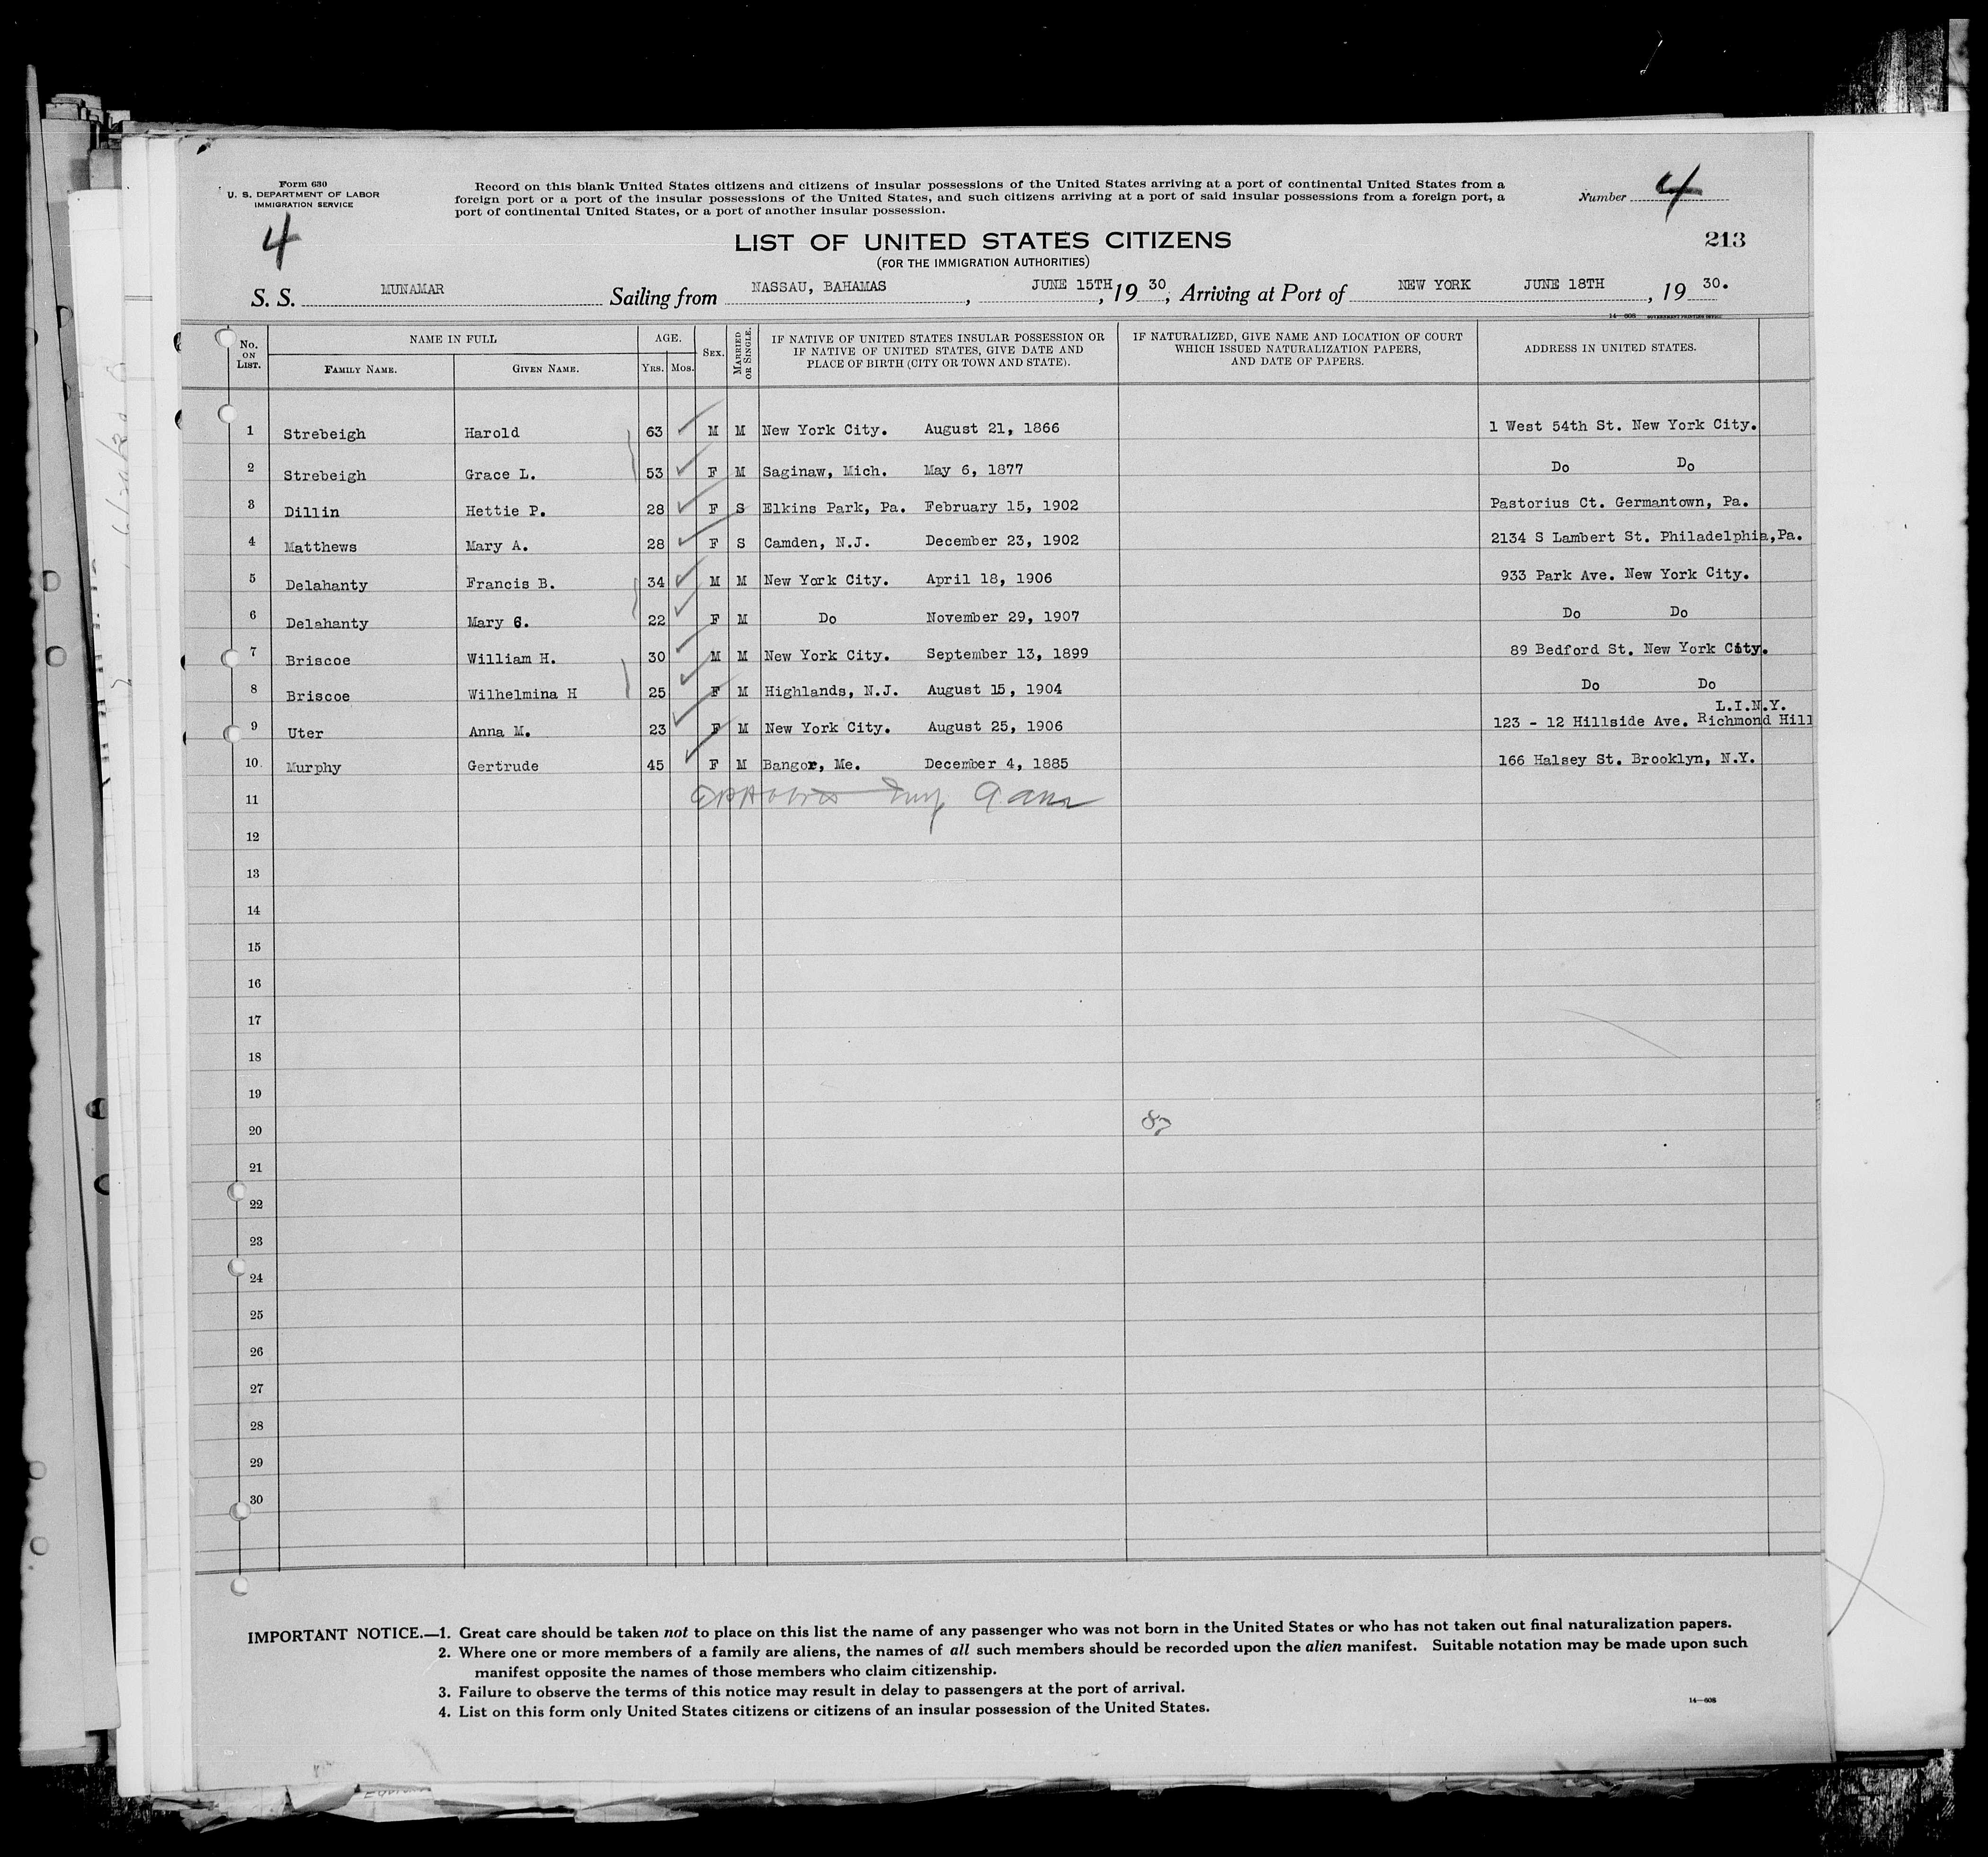 Form 630
U. S. DEPARTMENT OF LABOR
IMMIGRATION SERVICE
4
Record on this blank United States citizens and citizens of insular possessions of the United States arriving at a port of continental United States from a
foreign port or a port of the insular possessions of the United States, and such citizens arriving at a port of said insular possessions from a foreign port, a
port of continental United States, or a port of another insular possession.
Number 4
LIST OF UNITED STATES CITIZENS
213
(FOR THE IMMIGRATION AUTHORITIES)
S. S. MUNAMAR Sailing from NASSAU, BAHAMAS, JUNE 15TH, 19 30, Arriving at Port of NEW YORK JUNE 18TH, 19 30.
14—608 GOVERNMENT PRINTING OFFICE
No. ON LIST. NAME IN FULL FAMILY NAME. GIVEN NAME. AGE. YRS. MOS. SEX. MARRIED OR SINGLE. IF NATIVE OF UNITED STATES INSULAR POSSESSION OR IF NATIVE OF UNITED STATES, GIVE DATE AND PLACE OF BIRTH (CITY OR TOWN AND STATE). IF NATURALIZED, GIVE NAME AND LOCATION OF COURT WHICH ISSUED NATURALIZATION PAPERS, AND DATE OF PAPERS. ADDRESS IN UNITED STATES.
1 Strebeigh Harold 63 M M New York City. August 21, 1866 1 West 54th St. New York City.
2 Strebeigh Grace L. 53 F M Saginaw, Mich. May 6, 1877 Do Do
3 Dillin Hettie P. 28 F S Elkins Park, Pa. February 15, 1902 Pastorius Ct. Germantown, Pa.
4 Matthews Mary A. 28 F S Camden, N.J. December 23, 1902 2134 S Lambert St. Philadelphia,Pa.
5 Delahanty Francis B. 34 M M New York City. April 18, 1906 933 Park Ave. New York City.
6 Delahanty Mary G. 22 F M Do November 29, 1907 Do Do
7 Briscoe William H. 30 M M New York City. September 13, 1899 89 Bedford St. New York City.
8 Briscoe Wilhelmina H 25 F M Highlands, N.J. August 15, 1904 Do Do
L.I.N.Y.
9 Uter Anna M. 23 F M New York City. August 25, 1906 123 - 12 Hillside Ave. Richmond Hill
10 Murphy Gertrude 45 F M Bangor, Me. December 4, 1885 166 Halsey St. Brooklyn, N.Y.
11
12
13
14
15
16
17
18
19
20
21
22
23
24
25
26
27
28
29
30
IMPORTANT NOTICE.—1. Great care should be taken not to place on this list the name of any passenger who was not born in the United States or who has not taken out final naturalization papers.
2. Where one or more members of a family are aliens, the names of all such members should be recorded upon the alien manifest. Suitable notation may be made upon such
manifest opposite the names of those members who claim citizenship.
3. Failure to observe the terms of this notice may result in delay to passengers at the port of arrival.
4. List on this form only United States citizens or citizens of an insular possession of the United States.
14—608